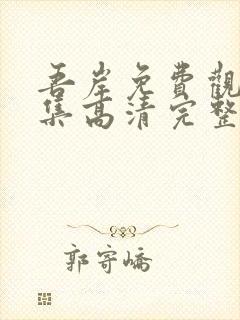 吾岸免費觀
集高清完整
郭寄嶠